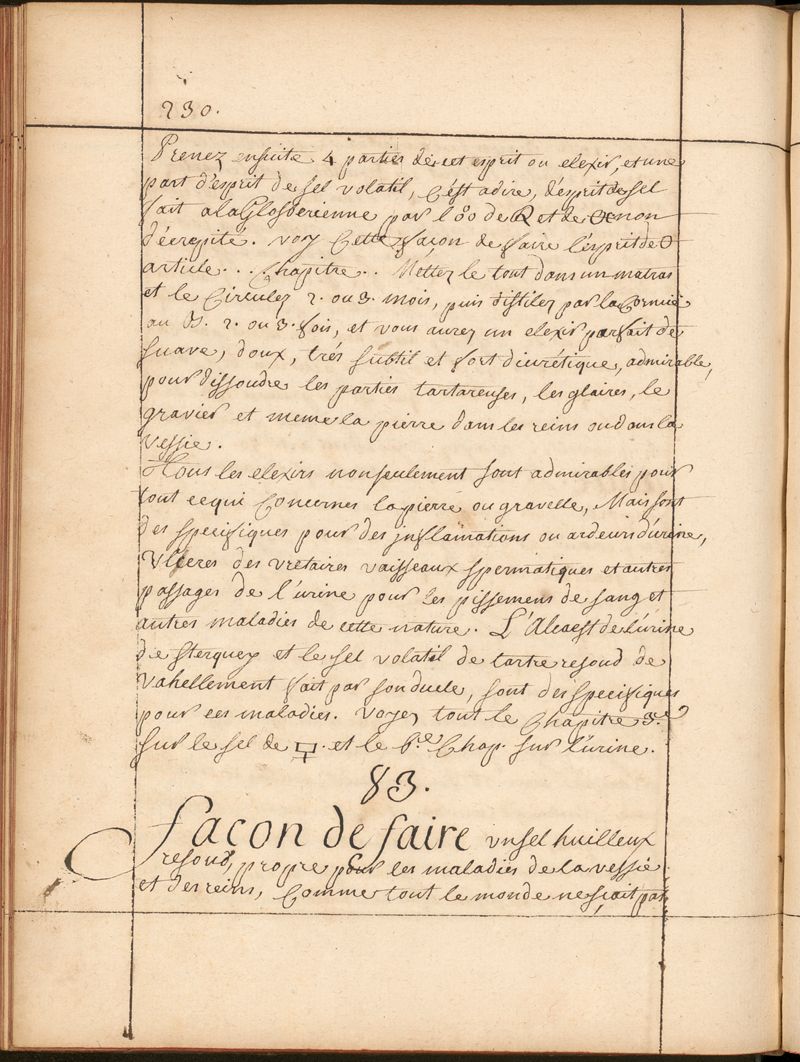 230.
Prenez ensuite 4 parties de cet esprit ou elexir, et une
part d'esprit de sel volatil, c'est adire, d'esprit de sel
fait ala Globerienne par l'8o de et de non
décrepité. voy cette façon de faire l'esprit de
article . . Chapitre . . Mettez le tout dans un matras
et le Circulez 2. ou 3. mois, puis distilez par la Cornue
au 2. ou 3. fois, et vous aurez un elexir parfait de
suave, doux, trés subtil et fort diurétique, admirable,
pour dissoudre les parties tartareuses, les glaires, le
gravier et meme la pierre dans les reins ou dans la
vessie.
Tous les elexirs nonseulement sont admirables pour
tout cequi Concernes la pierre ou gravelle, Mais sont
des specifiques pour des inflamations ou ardeurs d'urine,
Vlceres des vretaires vaisseaux spermatiques et autres
passages de l'urine pour les pissemens de sang et
autres maladies de cette nature. L'Alcaest de l'urine
de sterquey et le sel volatil de tartre resoud de
Vahellement fait par son ducte, sont des specifiques
pour ces maladies. Voyez tout le Chapitre 3.e
sur le sel de 🜿. et le 6.e Chap. sur l'urine.
83.
façon de faire vn sel huilleux
resoud, propre pour les maladies de la vessie
et des reins, Comme tout le monde ne sçait pas